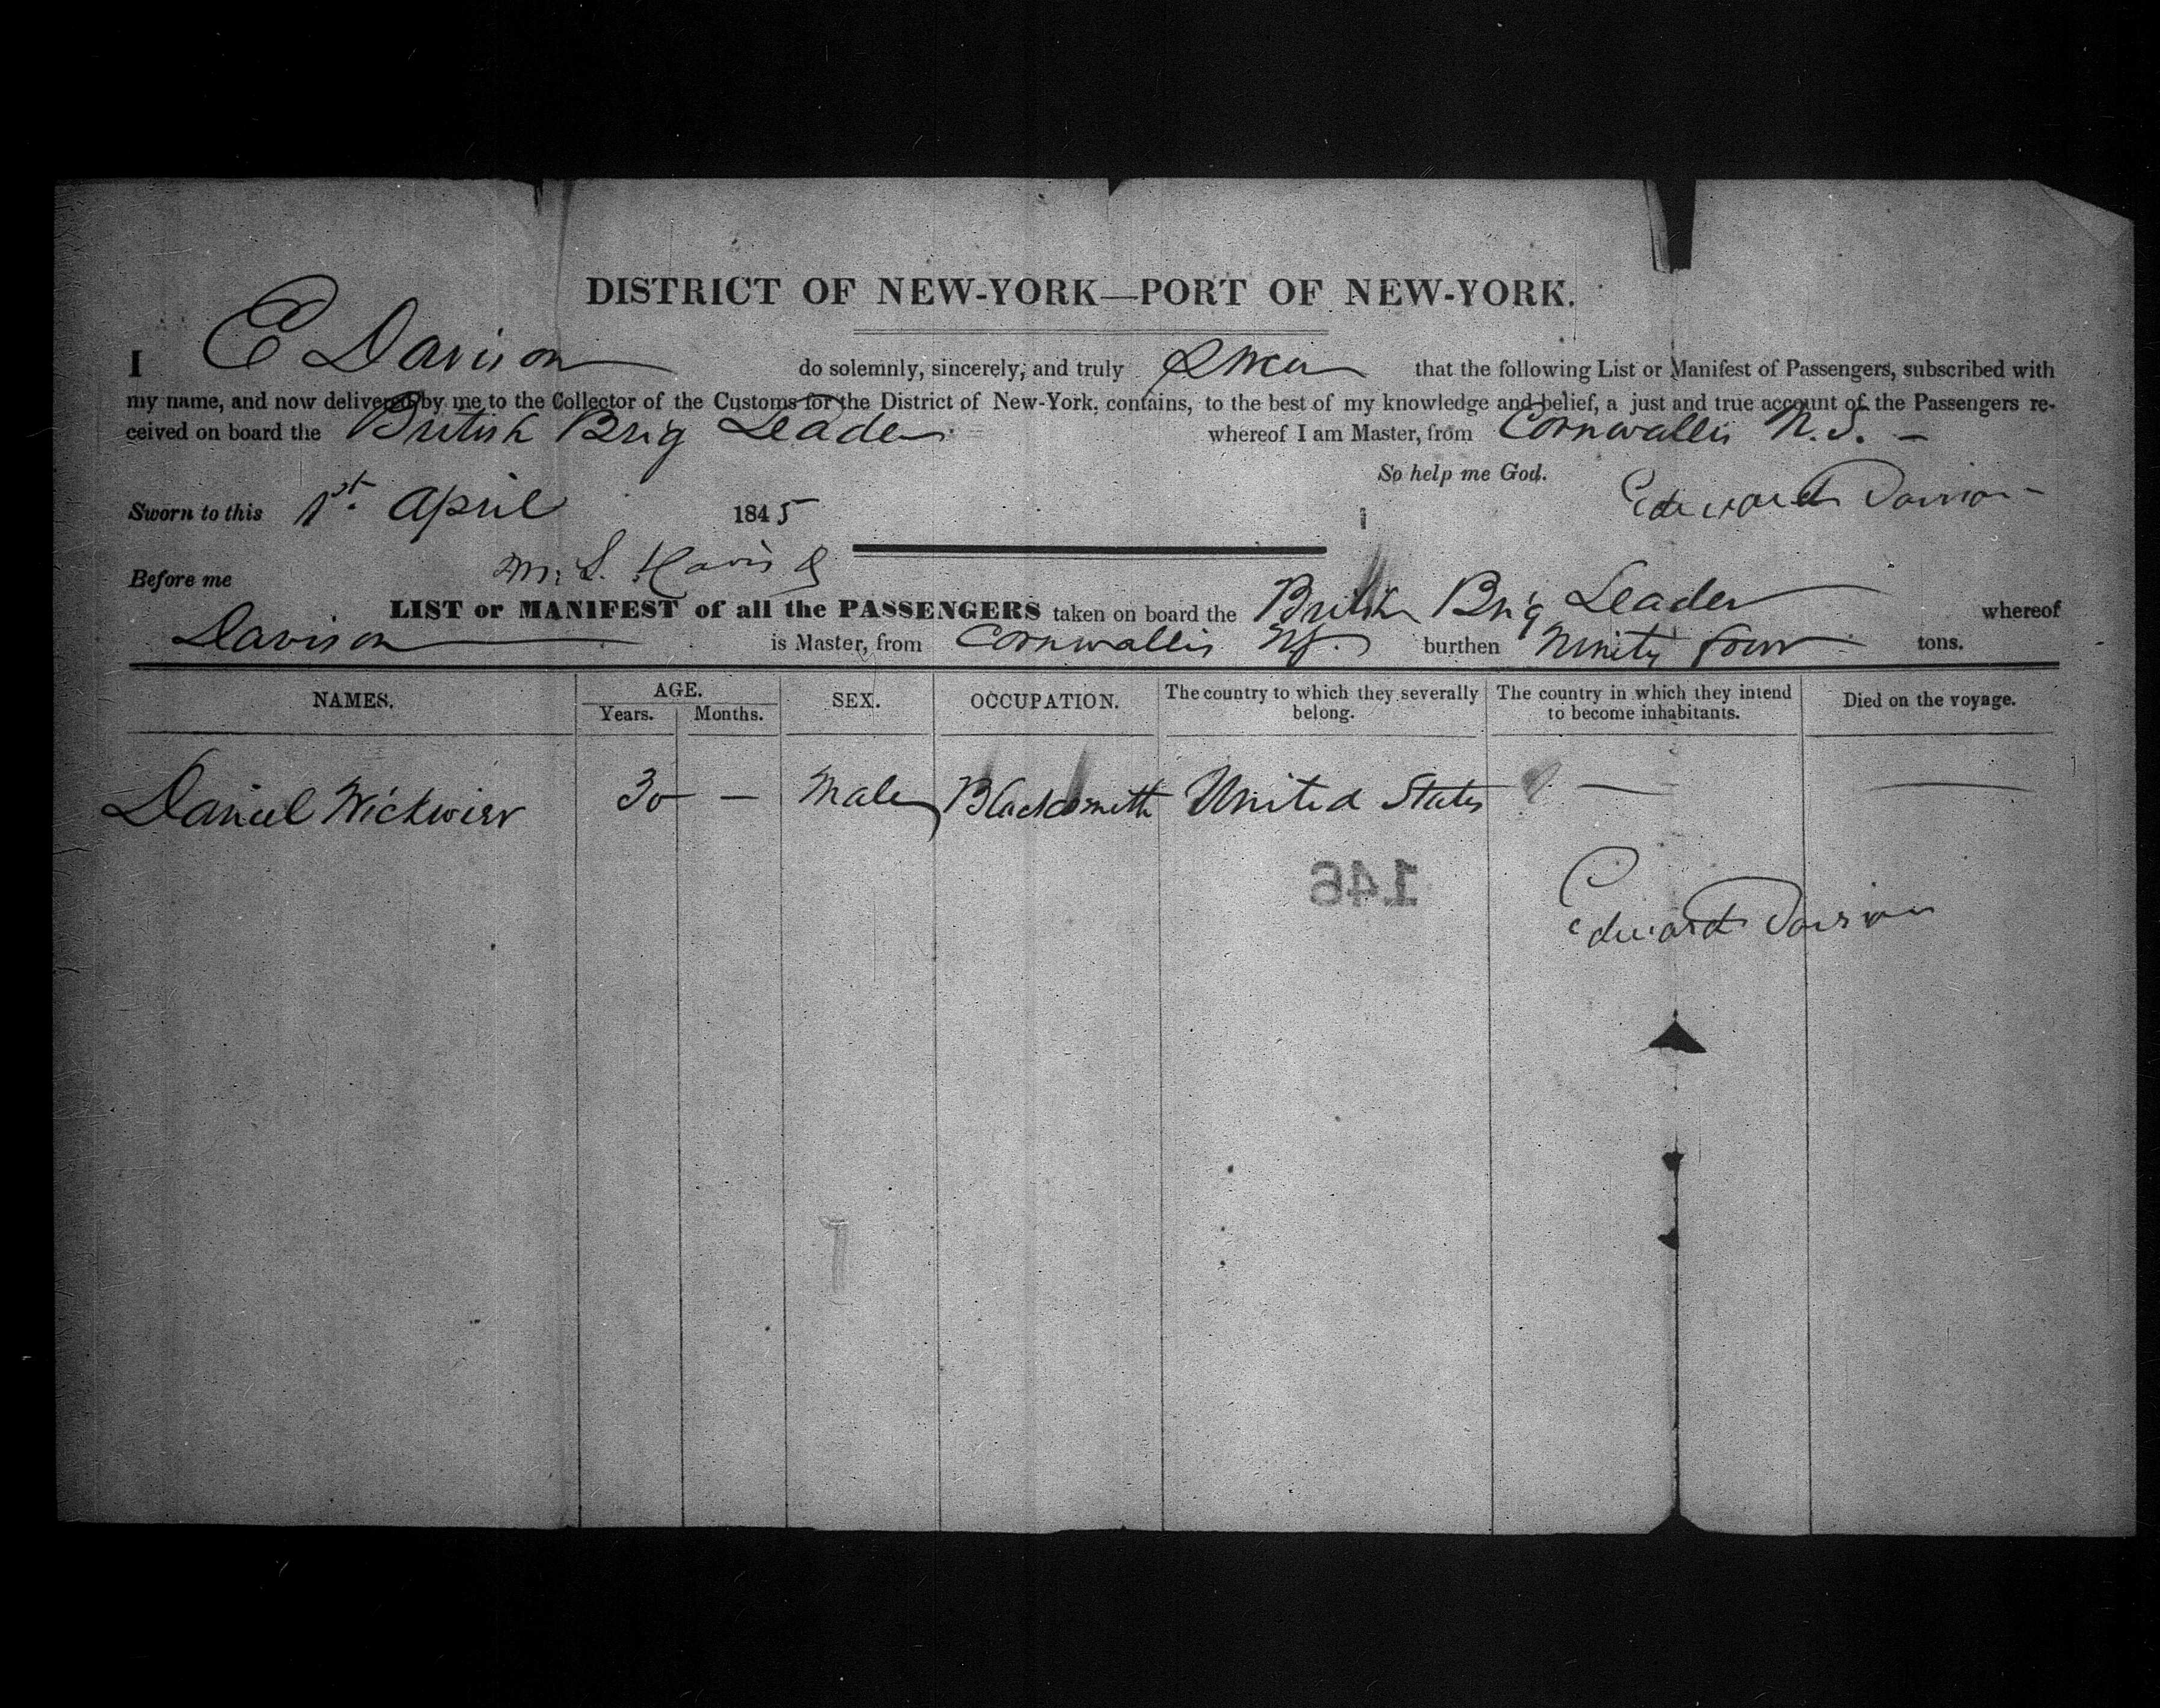 DISTRICT OF NEW-YORK—PORT OF NEW-YORK.
I E Davison do solemnly, sincerely, and truly Swear that the following List or Manifest of Passengers, subscribed with
my name, and now delivered by me to the Collector of the Customs for the District of New-York, contains, to the best of my knowledge and belief, a just and true account of the Passengers re-
ceived on board the British Brig Leader whereof I am Master, from Cornwallis N.S. —
So help me God.
Sworn to this 1st. April 1845 Edward Davison
Before me
LIST or MANIFEST of all the PASSENGERS taken on board the British Brig Leader whereof
Davison is Master, from Cornwallis NS. burthen Ninity four tons.
NAMES. AGE. SEX. OCCUPATION. The country to which they severally belong. The country in which they intend to become inhabitants. Died on the voyage.
Years. Months.
Daniel Wickwier 30 — Male Blacksmith United States — —
146
Edward Davison